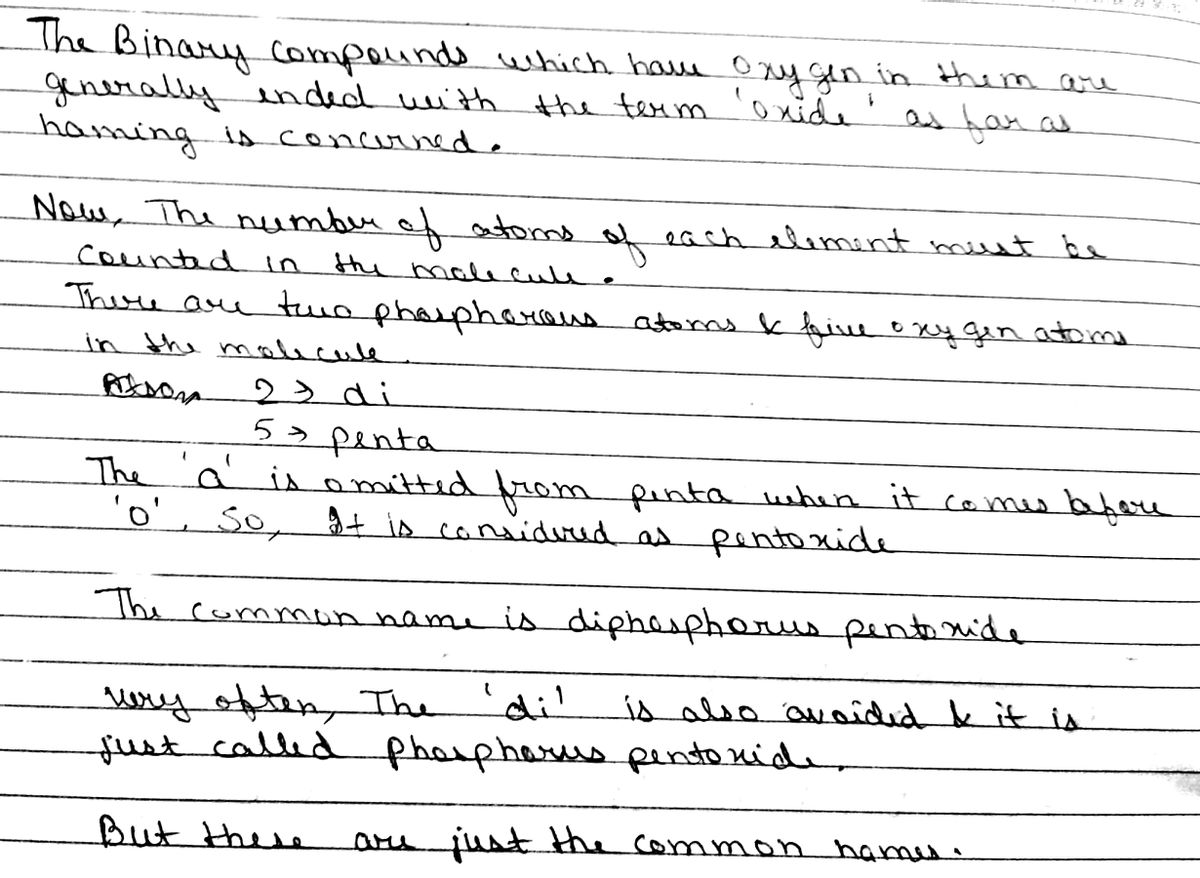 The Binary compounds which have oxygen in them are
generally ended with the term 'oxide' as far as
naming is concerned.
Now, The number of atoms of each element must be
counted in the molecule.
There are two phosphorous atoms & five oxygen atoms
in the molecule.
2 → di
5 → penta
The 'a' is omitted from penta when it comes before
'o'. So, It is considered as pentoxide
The common name is diphosphorus pentoxide
very often, The 'di' is also avoided & it is
just called phosphorus pentoxide.
But these are just the common names.